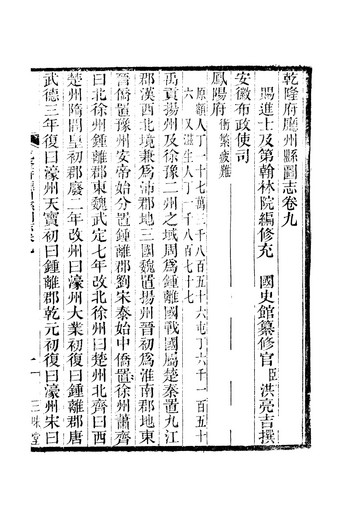 乾隆府廳州縣圖志卷九
賜進士及第翰林院編修充 國史館纂修官臣洪亮吉撰
安徽布政使司
鳳陽府衝繁疲難
原額人丁一十七萬三千八百五十六屯丁六千一百五十
六 又滋生人丁一千八百七十七
禹貢揚州及徐豫二州之域周爲鍾離國戰國屬楚秦置九江
郡漢西北境兼爲沛郡地三國魏置揚州晉初爲淮南郡地東
晉僑置豫州安帝始分置鍾離郡劉宋泰始中僑置徐州蕭齊
曰北徐州鍾離郡東魏武定七年改北徐州曰楚州齊曰西
楚州隋開皇初郡廢二年改州曰濠州大業初復曰鍾離郡唐
武德三年復曰濠州天寶初曰鍾離郡乾元初復曰濠州宋曰